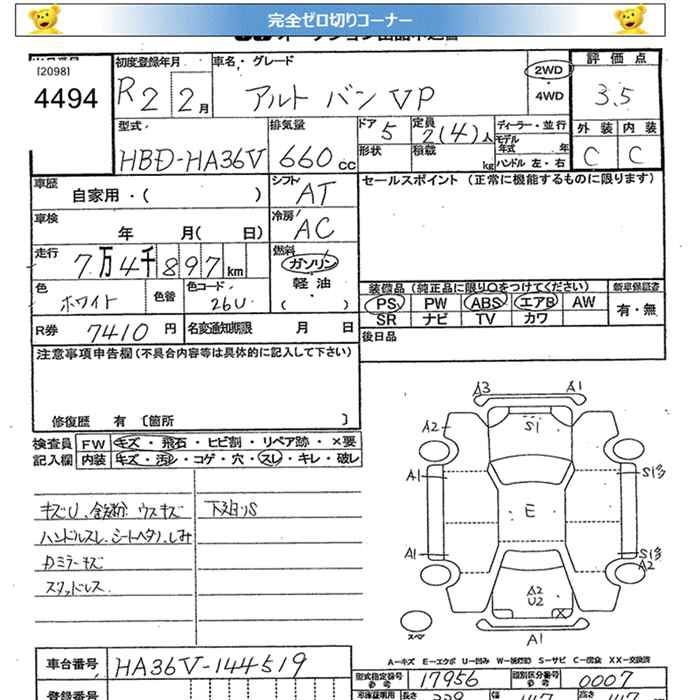 完全ゼロ切りコーナー
[2098]
4494
初度登録年月
R2 2月
車名・グレード
アルト バン VP
2WD
・4WD
評価点
3.5
型式
HBD-HA36V
排気量
660cc
ドア 5
定員 2(4)人
形状
積載 kg
ディーラー・並行
モデル年式 年
ハンドル 左・右
外装 内装
C C
車歴
自家用・( )
シフト
AT
セールスポイント (正常に機能するものに限ります)
車検
年 月( 日)
冷房
AC
走行
7万4千897km
燃料
ガソリン
・軽油・
( )
色
ホワイト
色替
色コード
26U
装備品(純正品に限り○をつけてください)
新車保証書
PS PW ABS エアB AW
有・無
SR ナビ TV カワ
R券 7410円
名変通知期限 月 日
後日品
注意事項申告欄(不具合内容等は具体的に記入して下さい)
修復歴 有 〔箇所 〕
検査員記入欄
FW キズ・飛石・ヒビ割・リペア跡・×要
内装 キズ・汚レ・コゲ・穴・スレ・キレ・破レ
キズU、鉄粉 ウスキズ
下廻りS
ハンドルスレ、シートヘタリ、しみ
Dミラーキズ
スタッドレス
A3 A1
A2 S1
A1
E
A1
A2
A2
U2
X
スペ
A1
A-キズ E-エクボ U-凹み S-サビ C-腐食 XX-交換済
車台番号
HA36V-144519
型式指定番号 参考
17956
類別区分番号 参考
0007
登録番号
長さ
幅
高さ